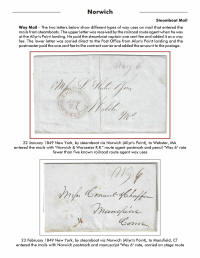 Norwich
Steamboat Mail
Way Mail - The two letters below show different types of way uses on mail that entered the
mails from steamboats. The upper letter was received by the railroad route agent when he was
at the Allyn's Point landing. He paid the steamboat captain one cent fee and added it as a way
fee. The lower letter was carried direct to the Post Office from Allyn's Point landing and the
postmaster paid the one cent fee to the contract carrier and added the amount to the postage.
Way 6
22 January 1849 New York, by steamboat via Norwich (Allyn's Point), to Webster, MA
entered the mails with "Norwich & Worcester R.R." route agent postmark and pencil "Way 6" rate
fewer than five known railroad route agent way uses
Way 6
Mansfield
Conn
23 February 1849 New York, by steamboat via Norwich (Allyn's Point), to Mansfield, CT
entered the mails with Norwich postmark and manuscript "Way 6" rate, carried on stage route